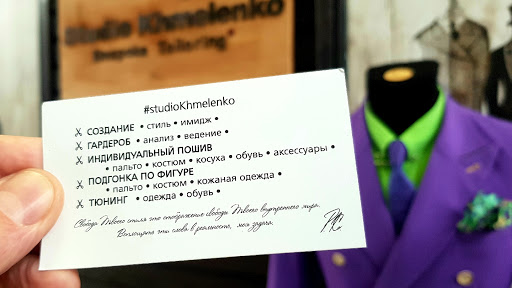 Studio Khmelenko
Bespoke Tailoring
#studioKhmelenko
СОЗДАНИЕ • стиль • имидж •
ГАРДЕРОБ • анализ • ведение •
ИНДИВИДУАЛЬНЫЙ ПОШИВ
• пальто • костюм • косуха • обувь • аксессуары •
ПОДГОНКА ПО ФИГУРЕ
• пальто • костюм • кожаная одежда •
ТЮНИНГ • одежда • обувь •
Свобода Твоего стиля это отображение свободы Твоего внутреннего мира.
Воплощать эти слова в реальность, моя задача.